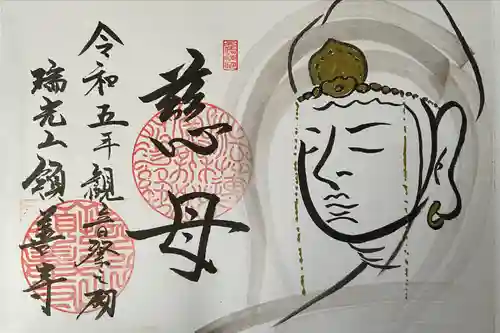 慈母
令和五年 観音祭之砌
瑞光山 善寺